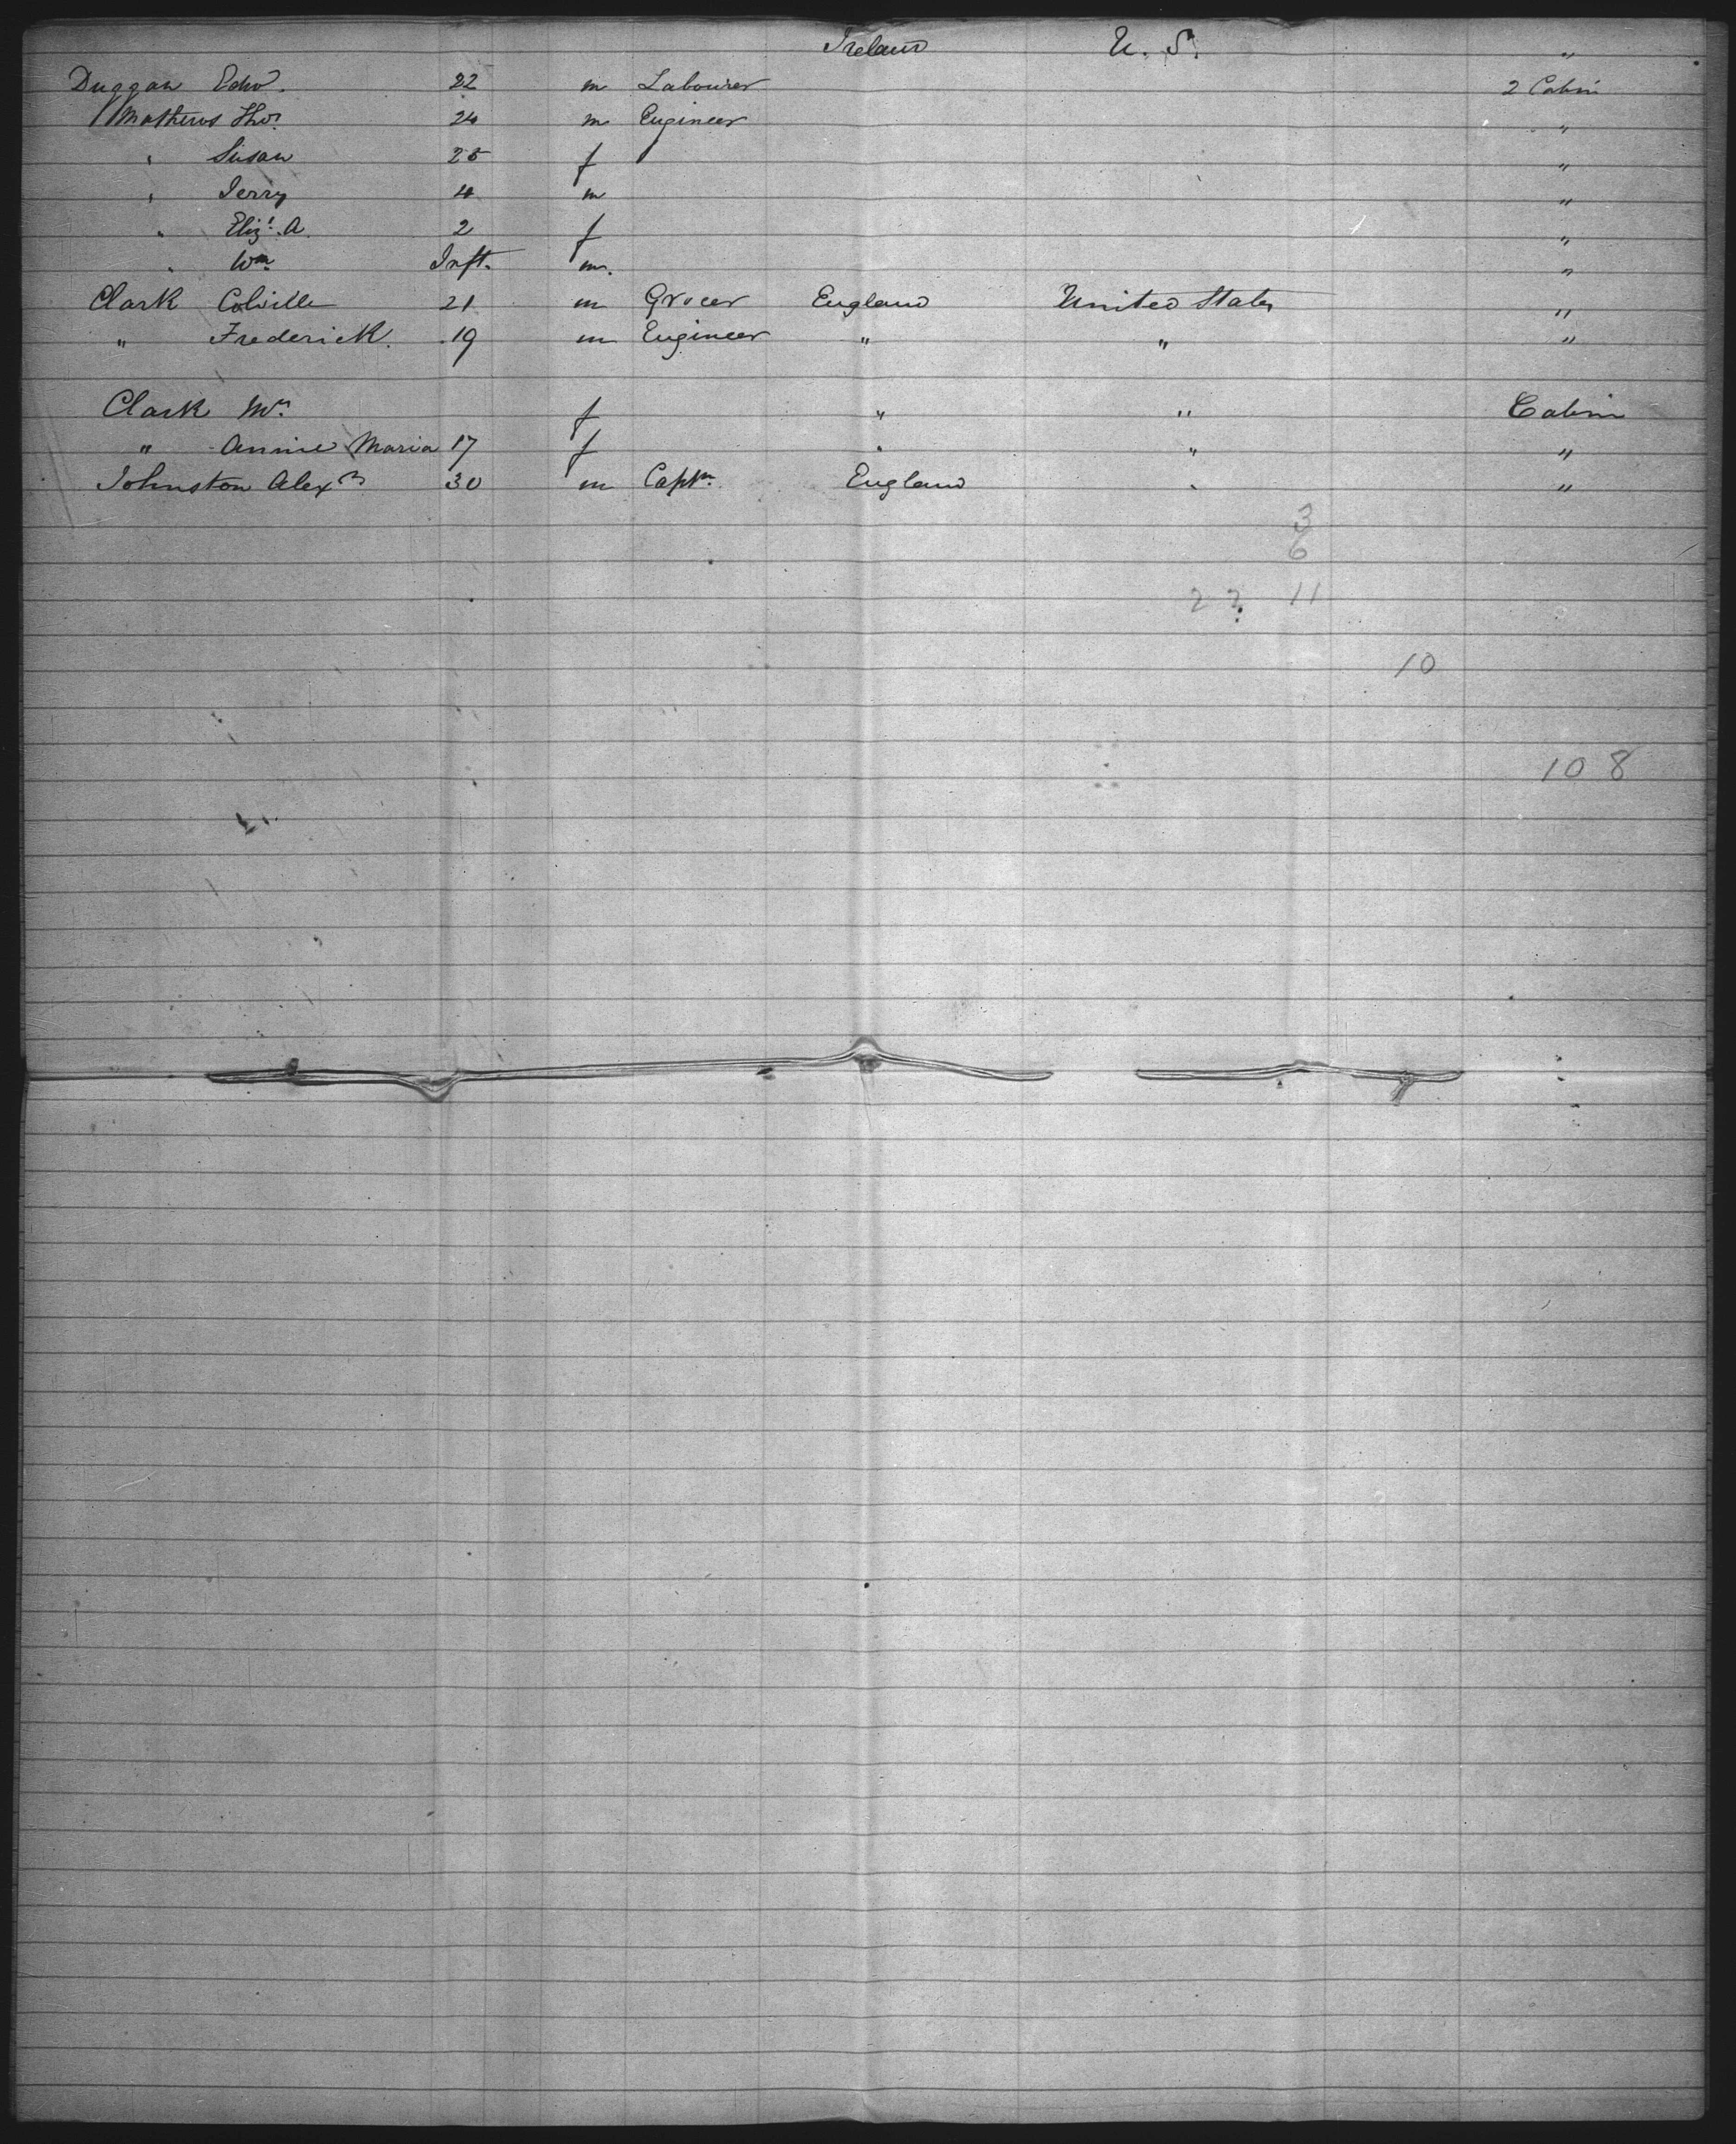 Ireland U. S. "
Duggan Edwd. 22 m Labourer 2 Cabin
Mathews Thos. 24 m Engineer "
" Susan 25 f "
" Jerry 4 m "
" Eliz. A. 2 f "
" Wm. Inft. m. "
Clark Colville 21 m Grocer England United States "
" Frederick. 19 m Engineer " " "
Clark Mrs. f " " Cabin
" Annie Maria 17 f " " "
Johnston Alexr 30 m Captn. England " "
3
6
2 2 11
10
10 8